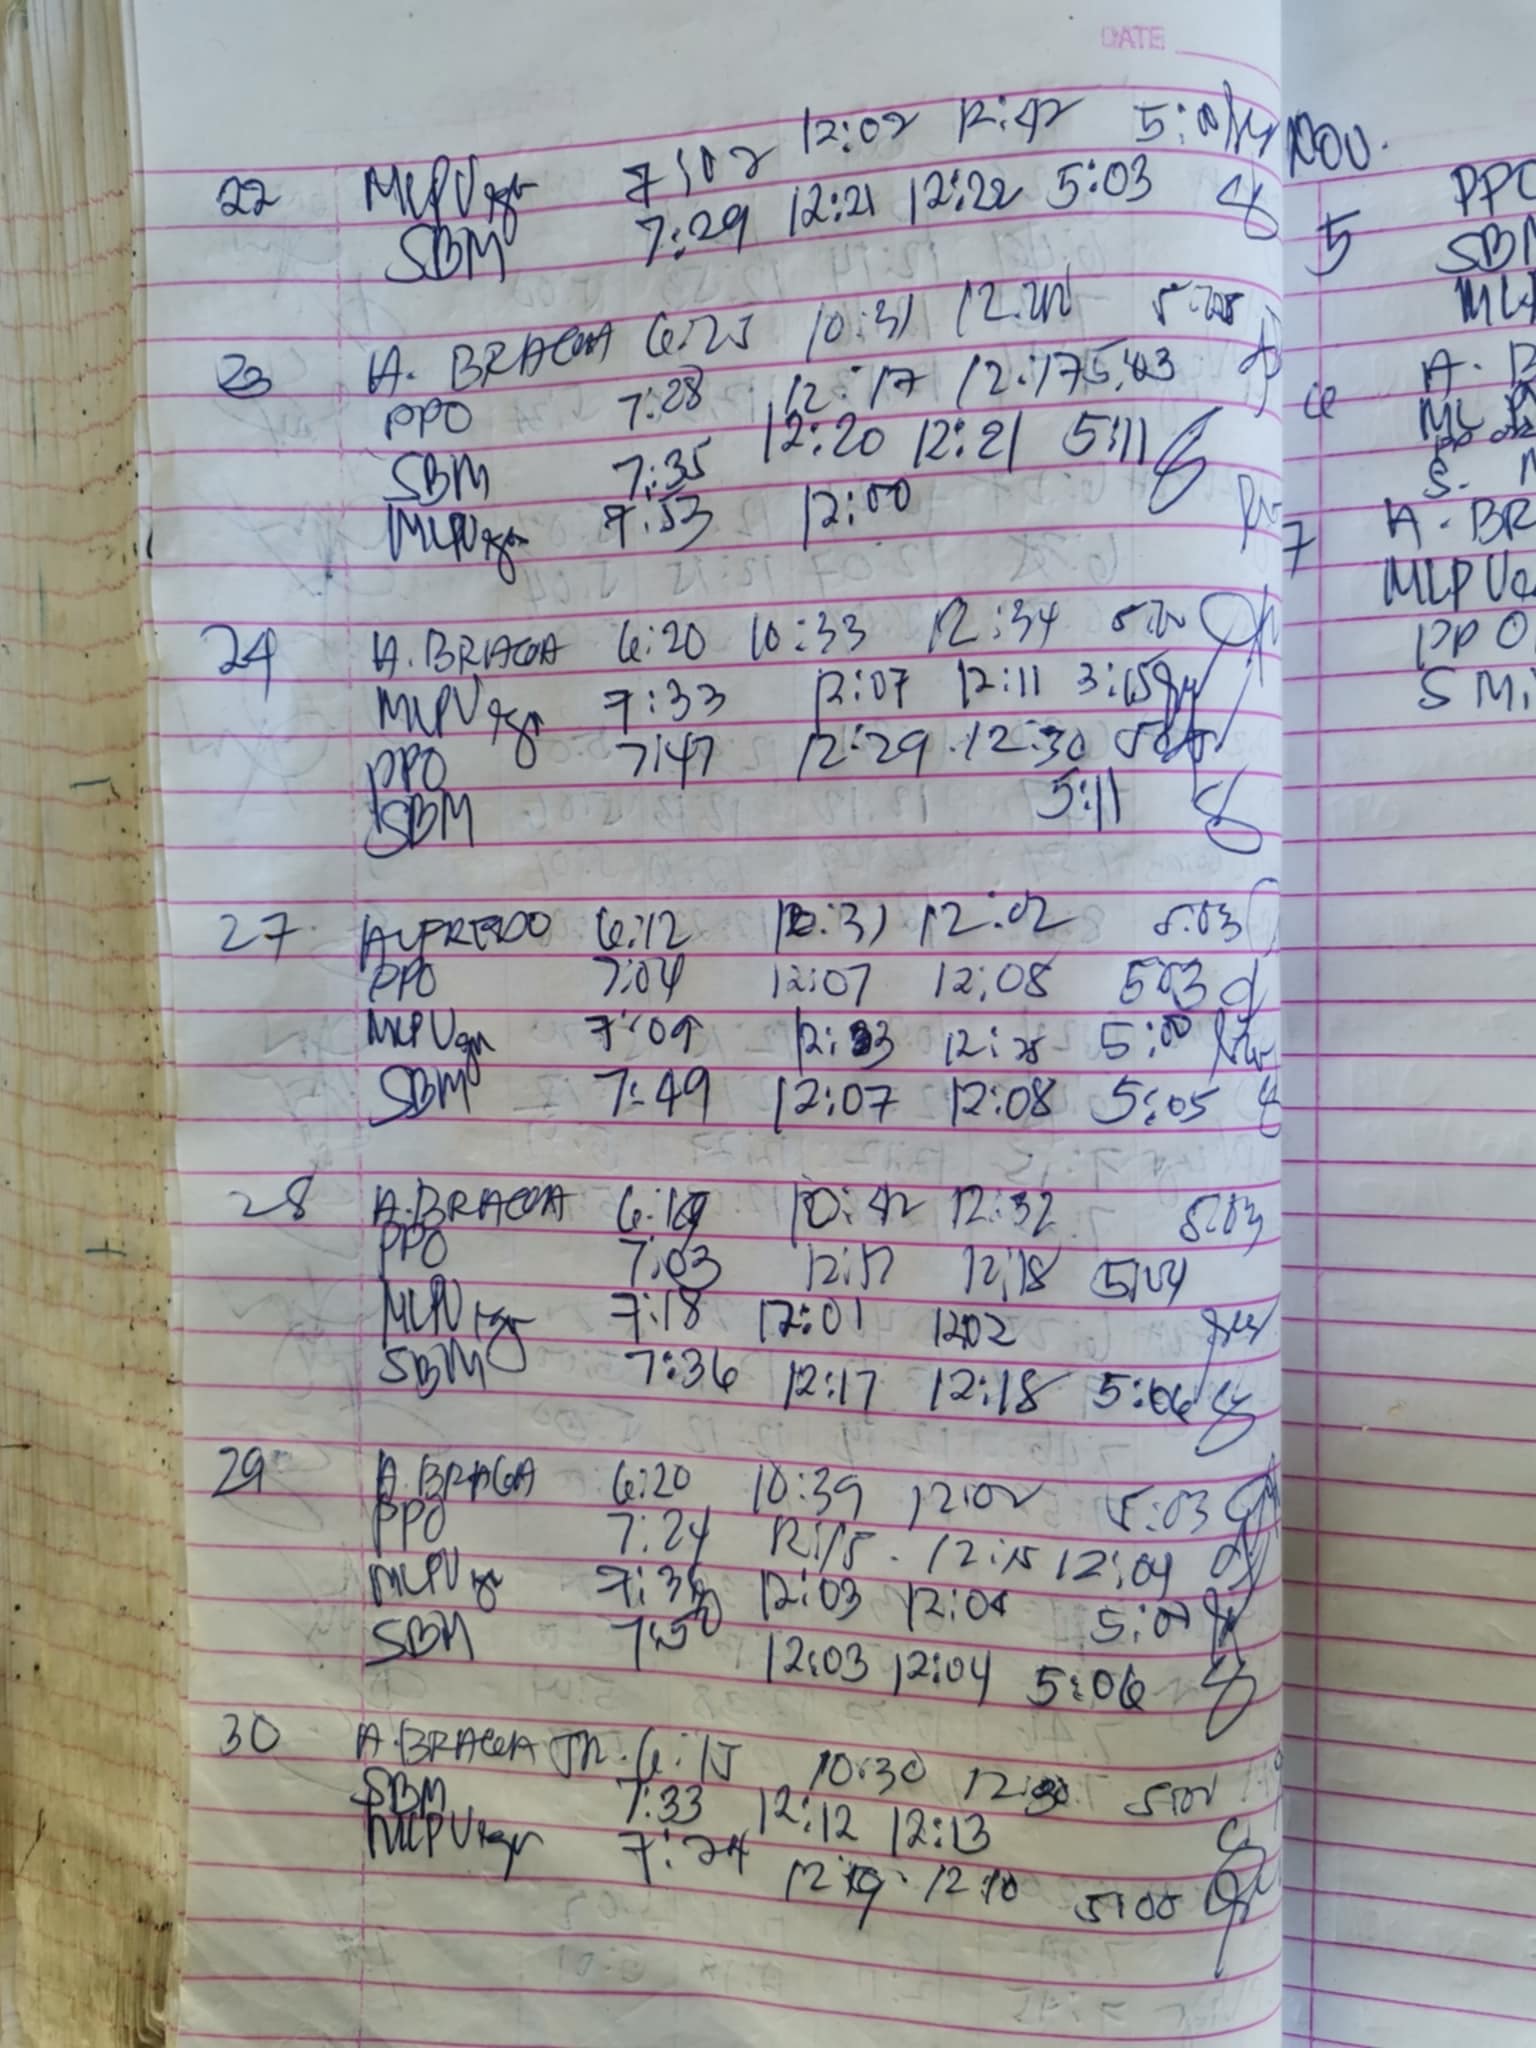 DATE
22 MLPV 7:02 12:02 12:42 5:00
SBM 7:29 12:21 12:22 5:03
23 A. BRAGA 6:25 10:31
PPO 7:28 12:17 12:17 5:03
SBM 7:35 12:20 12:21 5:11
MLPV 7:53 12:00
24 A. BRAGA 6:20 10:33 12:34
MLPV 7:33 12:07 12:11
PPO 7:47 12:29 12:30
SBM 5:11
27 ALFREDO 6:12 12:02 5:03
PPO 7:04 12:07 12:08 5:03
MLPV 7:09 5:00
SBM 7:49 12:07 12:08 5:05
28 A. BRAGA 10:42 12:32 5:03
PPO 7:03 12:17 12:18 5:04
MLPV 7:18 12:01 1202
SBM 7:36 12:17 12:18 5:06
29 A. BRAGA 6:20 10:39 12:02 5:03
PPO 7:24 12:15 12:15 12:04
MLPV 12:03 12:04
SBM 12:03 12:04 5:06
30 A. BRAGA JR. 6:15 10:30
SBM 7:33 12:12 12:13
MLPV 7:24 12:10 5:00
Nov.
PPO
5 SBM
A. B
ML P
S. M
7 A. BR
MLPV
PPO
S M